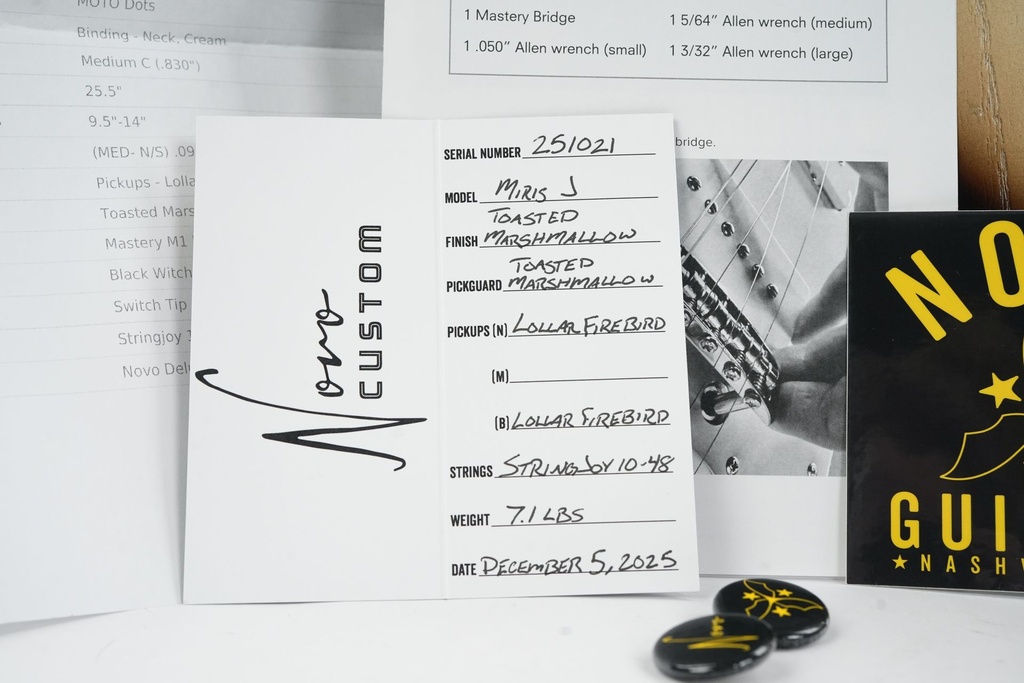 MOTO Dots
Binding - Neck, Cream
Medium C (.830")
25.5"
9.5"-14"
(MED- N/S) .09
Pickups - Lolla
Toasted Mars
Mastery M1
Black Witch
Switch Tip
Stringjoy
Novo Del
1 Mastery Bridge
1 5/64” Allen wrench (medium)
1 .050” Allen wrench (small)
1 3/32” Allen wrench (large)
bridge.
Novo
CUSTOM
SERIAL NUMBER 251021
MODEL MIRIS J
FINISH TOASTED
MARSHMALLOW
PICKGUARD TOASTED
MARSHMALLOW
PICKUPS (N) LOLLAR FIREBIRD
(M)
(B) LOLLAR FIREBIRD
STRINGS STRINGJOY 10-48
WEIGHT 7.1 LBS
DATE DECEMBER 5, 2025
NO
GUI
NASHV